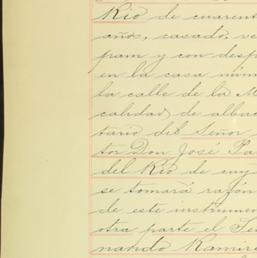 Río de cuarent
años, casado, ve
pam y con desp
en la casa núm
la calle de la M
calidad de alba
tario del Señor
tor Don José Pa
del Río de cuy
se tomará razón
de este instrume
otra parte el Se
nando Ramíre